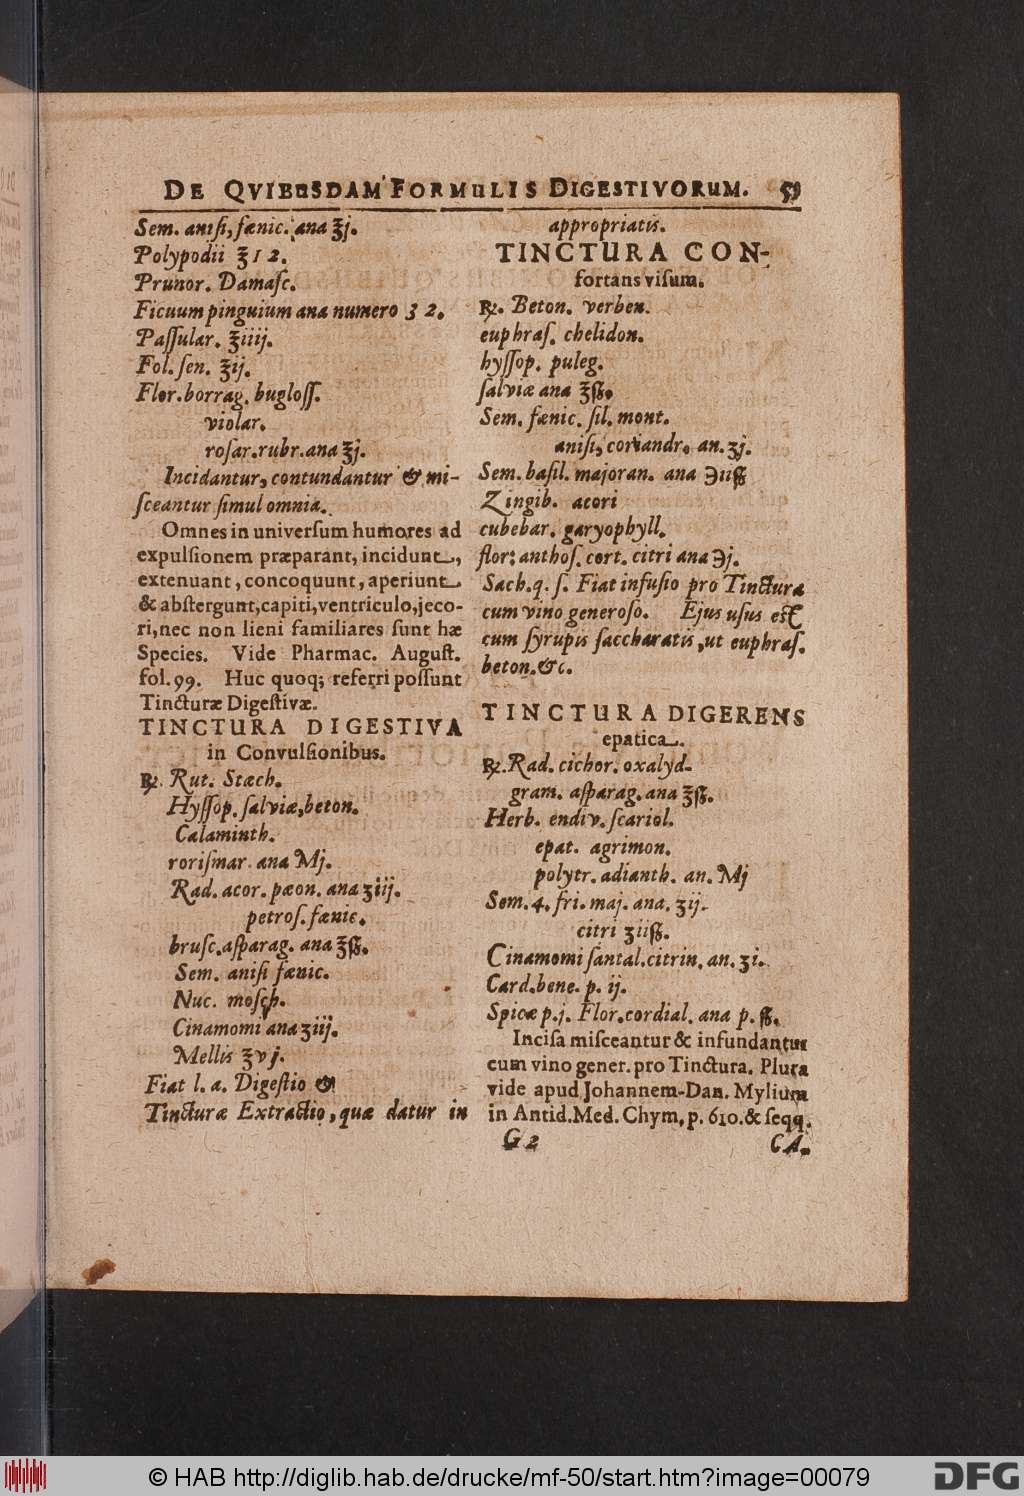 DE QVIBUSDAM FORMULIS DIGESTIVORUM. 51
Sem. anisi, fænic. ana ʒj.
Polypodii ℥12.
Prunor. Damasc.
Ficuum pinguium ana numero 32.
Paſſular. ℥iiij.
Fol. ſen. ℥ij.
Flor. borrag. bugloſſ.
violar.
roſar. rubr. ana ℥j.
Incidantur, contundantur & mi-
ſceantur ſimul omnia.
Omnes in univerſum humores ad
expulſionem præparant, incidunt,
extenuant, concoquunt, aperiunt
& abſtergunt, capiti, ventriculo, jeco-
ri, nec non lieni familiares ſunt hæ
Species. Vide Pharmac. Auguſt.
fol. 99. Huc quoq; referri poſſunt
Tincturæ Digeſtivæ.
TINCTURA DIGESTIVA
in Convulſionibus.
℞. Rut. Stæch.
Hyſſop. ſalviæ, beton.
Calaminth.
roriſmar. ana Mj.
Rad. acor. pæon. ana ʒiij.
petroſ. fænic.
bruſc. aſparag. ana ℥ß.
Sem. aniſi fænic.
Nuc. moſch.
Cinamomi ana ʒiij.
Mellis ℥vj.
Fiat l. a. Digeſtio &
Tincturæ Extractio, quæ datur in
appropriatis.
TINCTURA CON-
fortans viſum.
℞. Beton. verben.
euphraſ. chelidon.
hyſſop. puleg.
ſalviæ ana ℥ß.
Sem. fænic. ſil. mont.
aniſi, coriandr. an. ʒj.
Sem. baſil. majoran. ana ℈iiß
Zingib. acori
cubebar. garyophyll.
flor: anthoſ. cort. citri ana ℈j.
Sach. q. ſ. Fiat infuſio pro Tinctura
cum vino generoſo. Ejus uſus eſt
cum ſyrupis ſaccharatis, ut euphraſ.
beton. &c.
TINCTURA DIGERENS
epatica.
℞. Rad. cichor. oxalyd.
gram. aſparag. ana ℥ß.
Herb. endiv. ſcariol.
epat. agrimon.
polytr. adianth. an. Mj
Sem. 4. fri. maj. ana. ʒij.
citri ʒiiß.
Cinamomi ſantal. citrin. an. ʒi.
Card. bene. p. ij.
Spicæ p. j. Flor. cordial. ana p. ß.
Inciſa miſceantur & infundantur
cum vino gener. pro Tinctura. Plura
vide apud Johannem-Dan. Mylium
in Antid. Med. Chym, p. 610. & ſeqq.
G 2 CA.
© HAB http://diglib.hab.de/drucke/mf-50/start.htm?image=00079
DFG